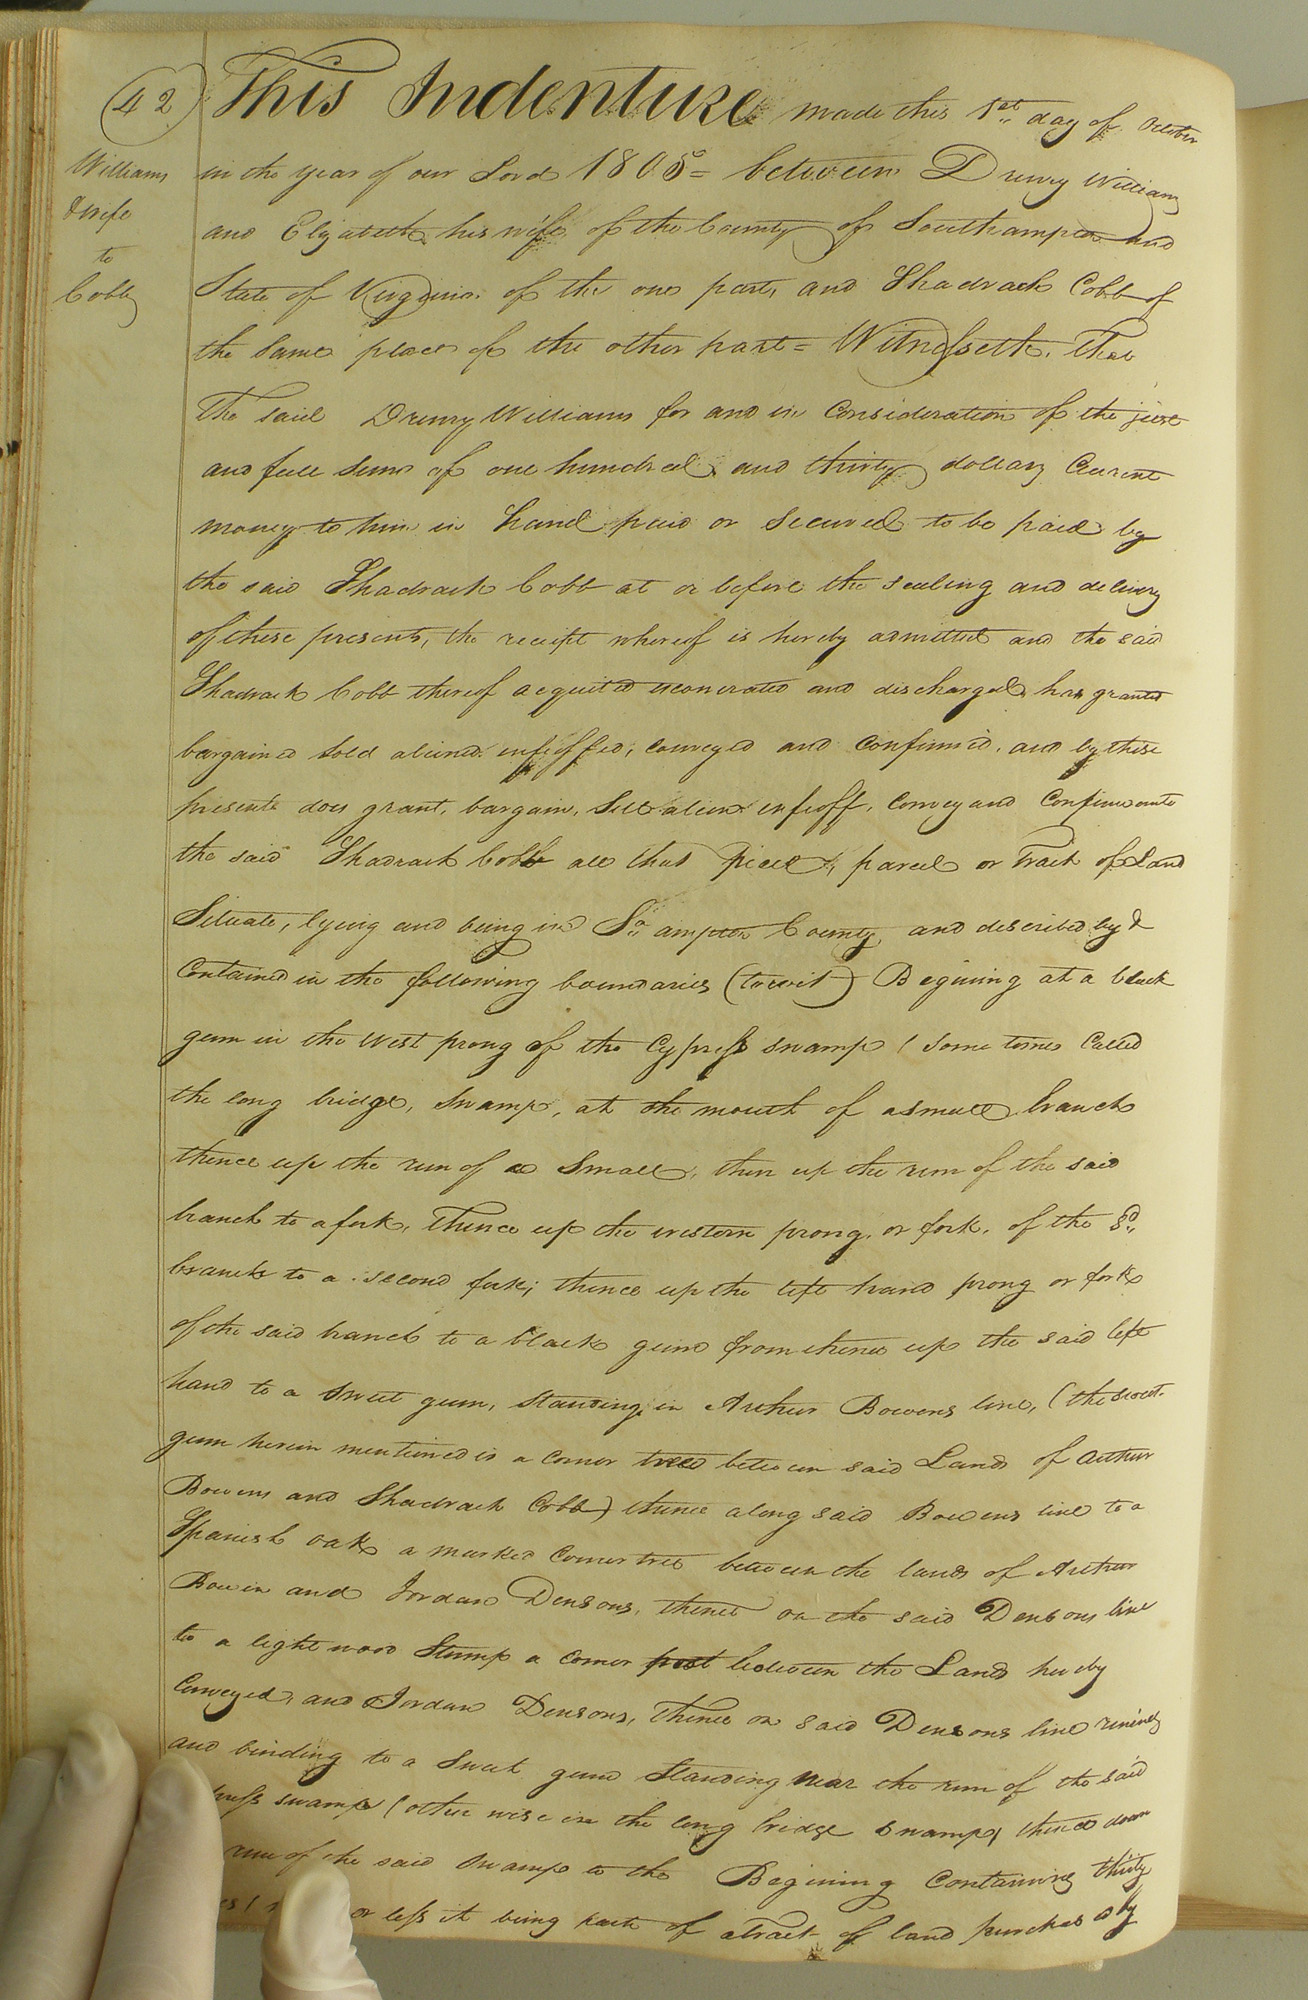 42
Williams
& wife
to
Cobb
This Indenture made this 1st day of October
in the year of our Lord 1805 = between Drewry Williams
and Elizabeth his wife of the County of Southampton and
State of Virginia of the one part, and Shadrack Cobb of
the same place of the other part = Witnesseth, That
the said Drewry Williams for and in Consideration of the just
and full sum of one hundred and thirty dollars Current
money to him in hand paid or secured to be paid by
the said Shadrack Cobb at or before the sealing and delivery
of these presents, the receipt whereof is hereby admitted and the said
Shadrack Cobb thereof acquited exonerated and discharged, has granted
bargained sold aliened enfeoffed, conveyed and confirmed, and by these
presents does grant, bargain, Sell alien enfeoff, Convey and Confirm unto
the said Shadrack Cobb all that piece, parcel or Tract of Land
Situate, lying and being in So. ampton County and described by &
Contained in the following boundaries (towit) Begining at a black
gum in the West prong of the Cypress swamp ( Some times Called
the long bridge, swamp, at the mouth of a small branch
thence up the run of a Small, then up the run of the said
branch to a fork, Thence up the western prong, or fork, of the sd.
branch to a second fork; thence up the left hand prong or fork
of the said branch to a black gum from thence up the said left
hand to a sweet gum, standing in Arthur Bowens line, (the sweet-
gum herein mentioned is a corner tree between said Lands of Arthur
Bowens and Shadrack Cobb) thence along said Bowens line to a
Spanish oak a marked Corner tree between the lands of Arthur
Bowen and Jordan Densons, thence on the said Densons line
to a light wood Stump a corner post between the Lands hereby
Conveyed, and Jordan Densons, Thence on said Densons line
and binding to a Sweet gum Standing near the run of the said
press swamp ( other wise in the long bridge swamp, thence down
run of the said swamp to the Begining Containing thirty
or less it being part of a tract of land purchased by